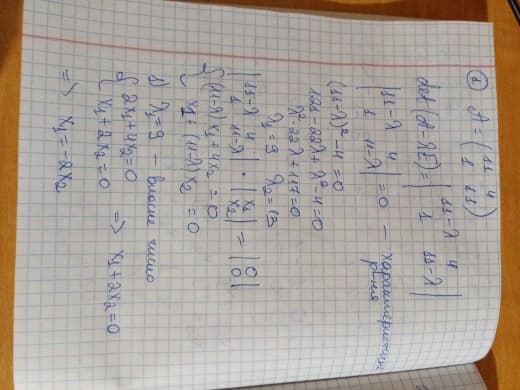 ① A = (11 4
1 11)
det(A-λE) = |11-λ 4
1 11-λ|
|11-λ 4
1 11-λ| = 0 — характеристичне
р-ння
(11-λ)² - 4 = 0
121 - 22λ + λ² - 4 = 0
λ² - 22λ + 117 = 0
λ₁ = 9 λ₂ = 13
|11-λ 4
1 11-λ| · |x₁
x₂| = |0
0|
{(11-λ)x₁ + 4x₂ = 0
x₁ + (11-λ)x₂ = 0
1) λ₁ = 9 — власне число
{2x₁ + 4x₂ = 0
x₁ + 2x₂ = 0 => x₁ + 2x₂ = 0
=> x₁ = -2x₂